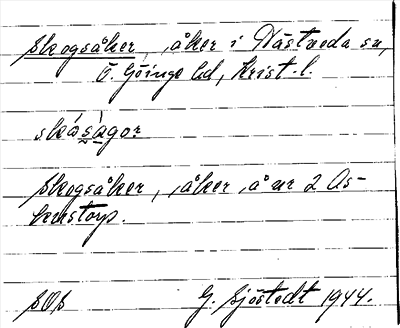 Skogsåker, åker i Nästveda sn,
Ö. Göinge hd, Krist. l.
skåságor
Skogsåker, åker å nr 2 As-
kastorp.
G. Sjöstedt 1944.